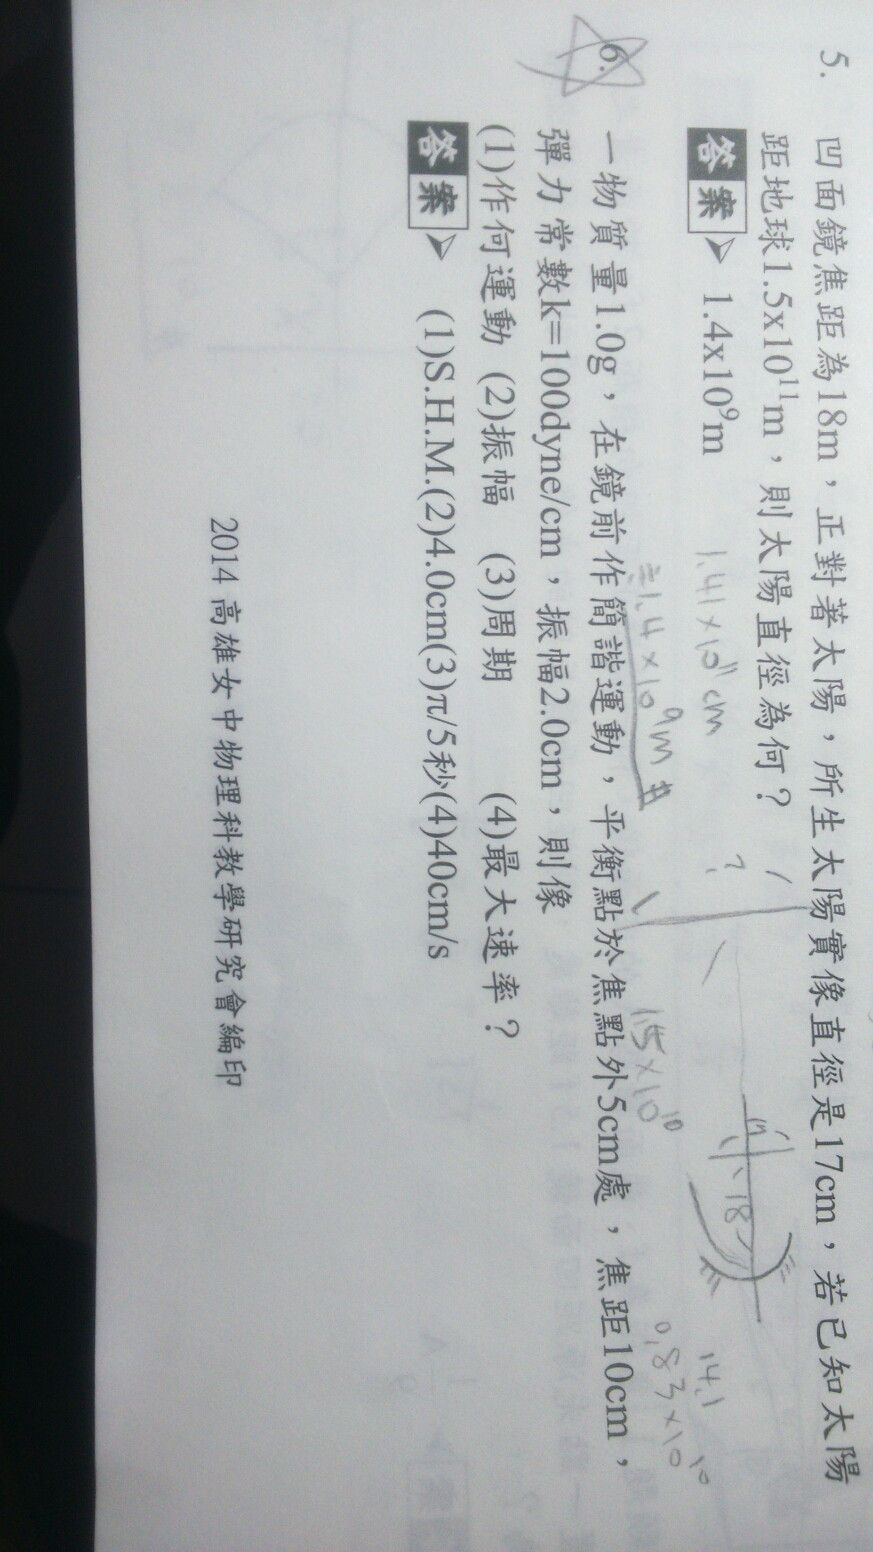 5. 凹面鏡焦距為18m，正對著太陽，所生太陽實像直徑是17cm，若已知太陽
距地球1.5x10¹¹m，則太陽直徑為何？
答案 1.4x10⁹m
1.41×10¹¹cm
≒1.4×10⁹m
?
1.5×10¹⁰
18
14.1
0.83×10¹⁰
6. 一物質量1.0g，在鏡前作簡諧運動，平衡點於焦點外5cm處，焦距10cm，
彈力常數k=100dyne/cm，振幅2.0cm，則像
(1)作何運動 (2)振幅 (3)周期 (4)最大速率？
答案 (1)S.H.M.(2)4.0cm(3)π/5秒(4)40cm/s
2014 高雄女中物理科教學研究會編印